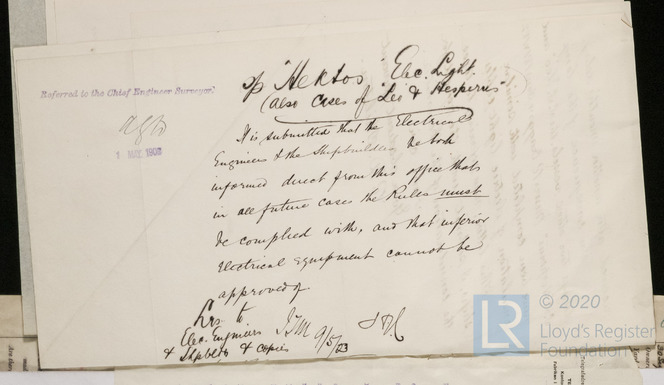 S/S "Hektos" Elec. Light.
(also cases of "Leo & Hesperus")
Referred to the Chief Engineer Surveyor.
It is submitted that the Electrical
Engineers & the Shipbuilders be both
informed direct from this office that
in all future cases the Rules must
be complied with, and that inferior
Electrical Equipment cannot be
approved of
Lrs to
Elec. Engineers
& Shpbldrs & copies
9/5/03
LR
© 2020
Lloyd's Register
Foundation